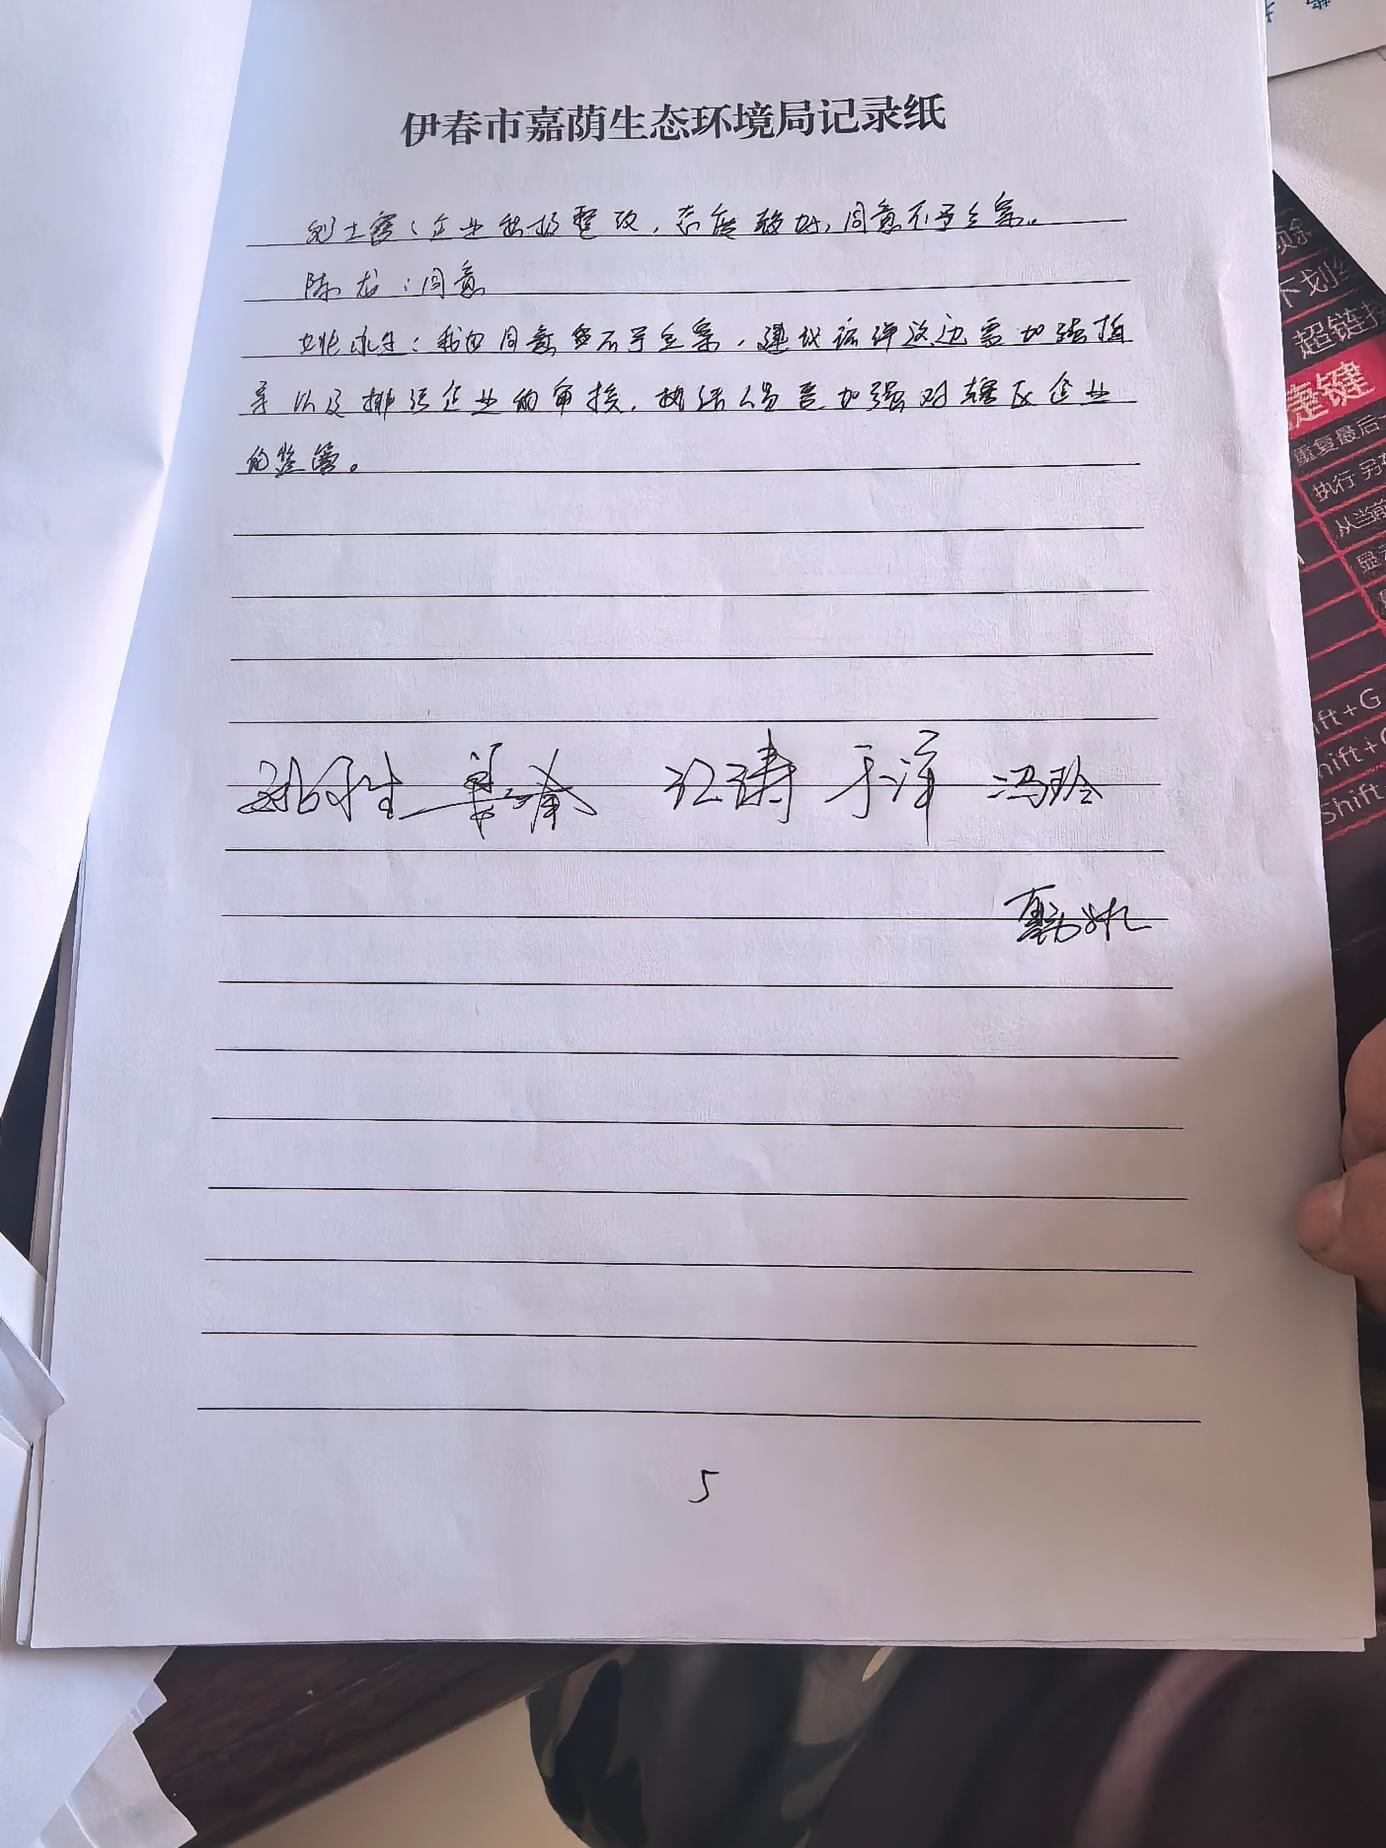 伊春市嘉荫生态环境局记录纸
刘士霞：企业积极整改，态度较好，同意不予立案。
陈龙：同意
姚永生：我也同意不予立案，建议法评这边需加强指
导以及排污企业的审核，执法人员要加强对辖区企业
的监管。
江涛 于洋 冯玲
5
除
下划线
超链接
捷键
重复最后一
执行 另存
从当前
显示
ift+G
hift+G
Shift+